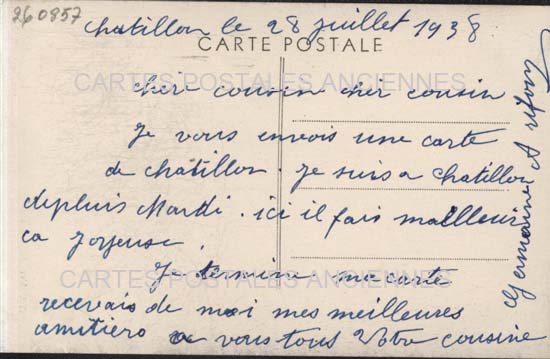 260857
chatillon le 28 juillet 1938
CARTE POSTALE
CARTES POSTALES ANCIENNES
cher cousin cher cousin
Je vous envois une carte
de chatillon. Je suis a chatillon
depluis Mardi. ici il fais mailleur
ca Joyeuse.
CARTES POSTALES ANCIENNES
Je termine ma carte
recevais de moi mes meilleures
amitiers a vous tous Votre cousine
Germaine A